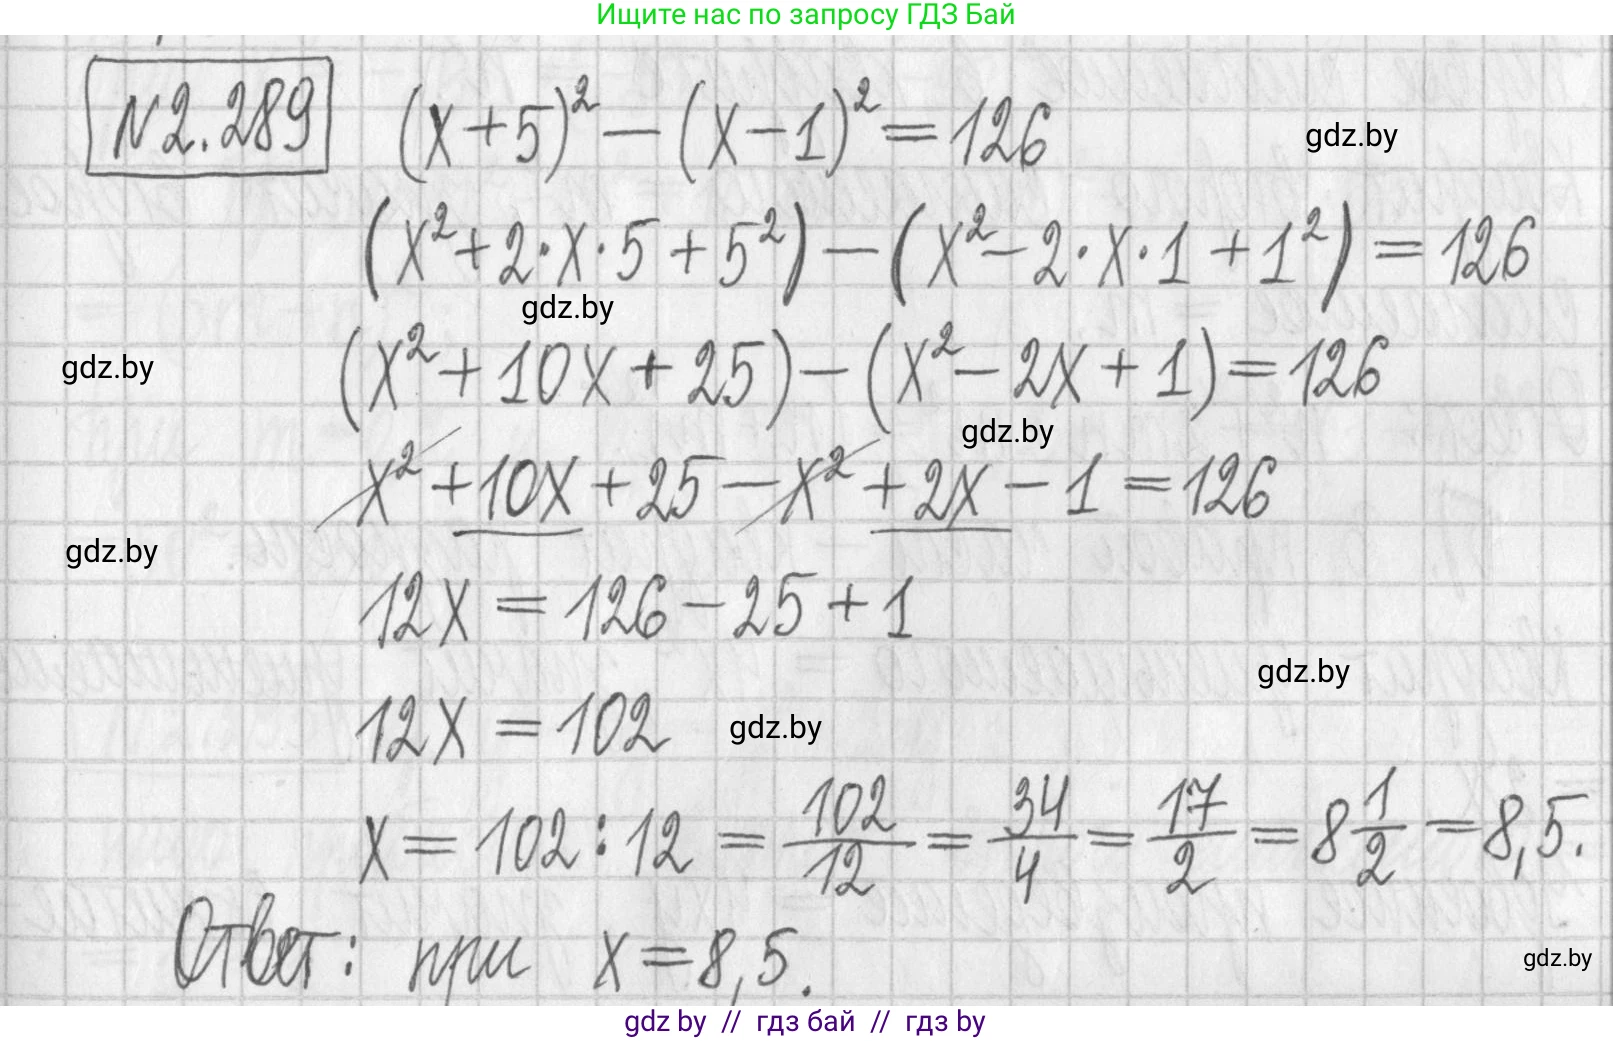 Ищите нас по запросу ГДЗ Бай
N2.289 (x+5)² − (x−1)² = 126
gdz.by
(x² + 2·x·5 + 5²) − (x² − 2·x·1 + 1²) = 126
gdz.by
gdz.by
(x² + 10x + 25) − (x² − 2x + 1) = 126
gdz.by
x² + 10x + 25 − x² + 2x − 1 = 126
gdz.by
12x = 126 − 25 + 1
gdz.by
12x = 102
gdz.by
x = 102 : 12 = 102/12 = 34/4 = 17/2 = 8 1/2 = 8,5.
Ответ: при x = 8,5.
gdz.by
gdz by // гдз бай // гдз by